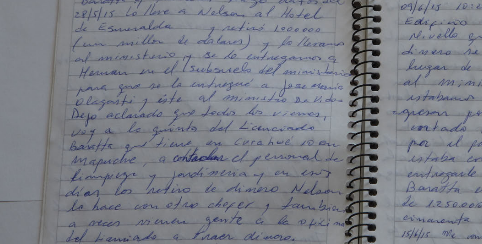 28/5/15 Lo lleve a Nelson al Hotel
de Esmeralda y retiró 1.000000
(un millon de dolares) y lo llevamos
al ministerio y se lo entregamos a
Hernan en el subsuelo del ministerio
para que se lo entregue a Jose Maria
Olazasti y éste al ministro De Vido
Dejo aclarado que todos los viernes,
voy a la quinta del Licenciado
Baratta que tiene en
Mapuche, a el personal de
limpieza y jardineria y en esos
dias los retiro de dinero Nelson
lo hace con otro chofer y tambien
a veces vienen gente a la oficina
del Licenciado a traer dinero.
Edificio
dinero
lugar de
al mini
estabamos
contado
por el p
estaba co
entregarle
Baratta
de 1250000
cincuenta
15/6/15